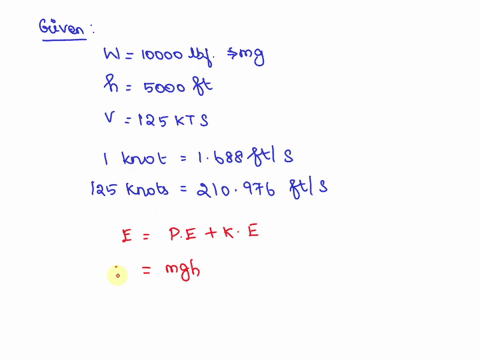 Given:
W = 10000 lbf. → mg
h = 5000 ft
V = 125 KTS
1 knot = 1.688 ft/s
125 knots = 210.976 ft/s
E = P.E + K.E
= mgh